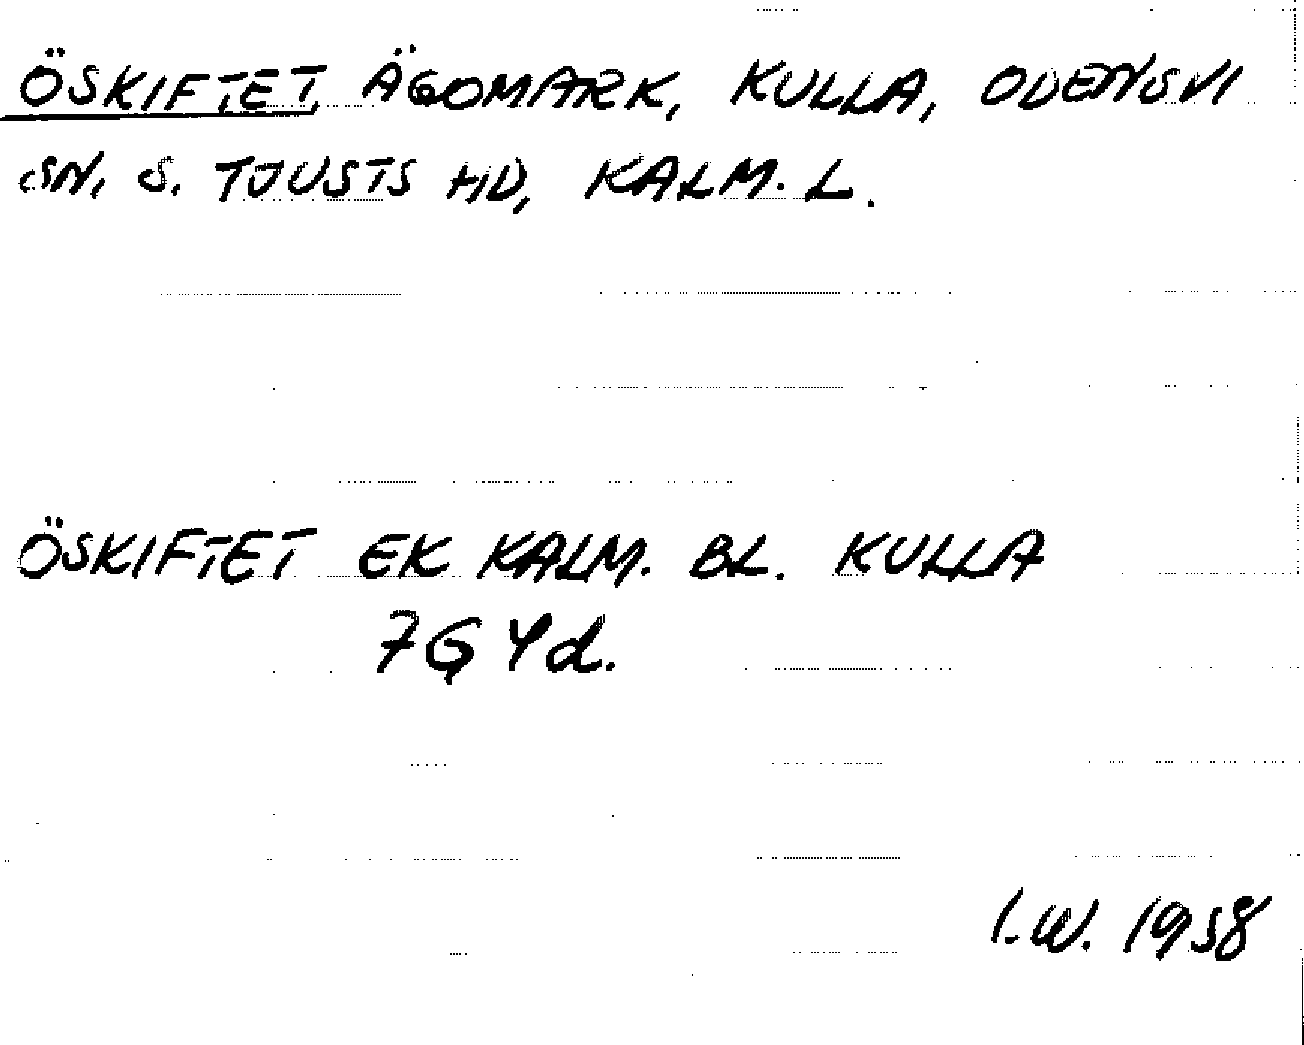 ÖSKIFTET, ÄGOMARK, KULLA, ODENSVI
SN, S. TJUSTS HD, KALM. L.
ÖSKIFTET EK KALM. BL. KULLA
7G 4d.
I.W. 1958